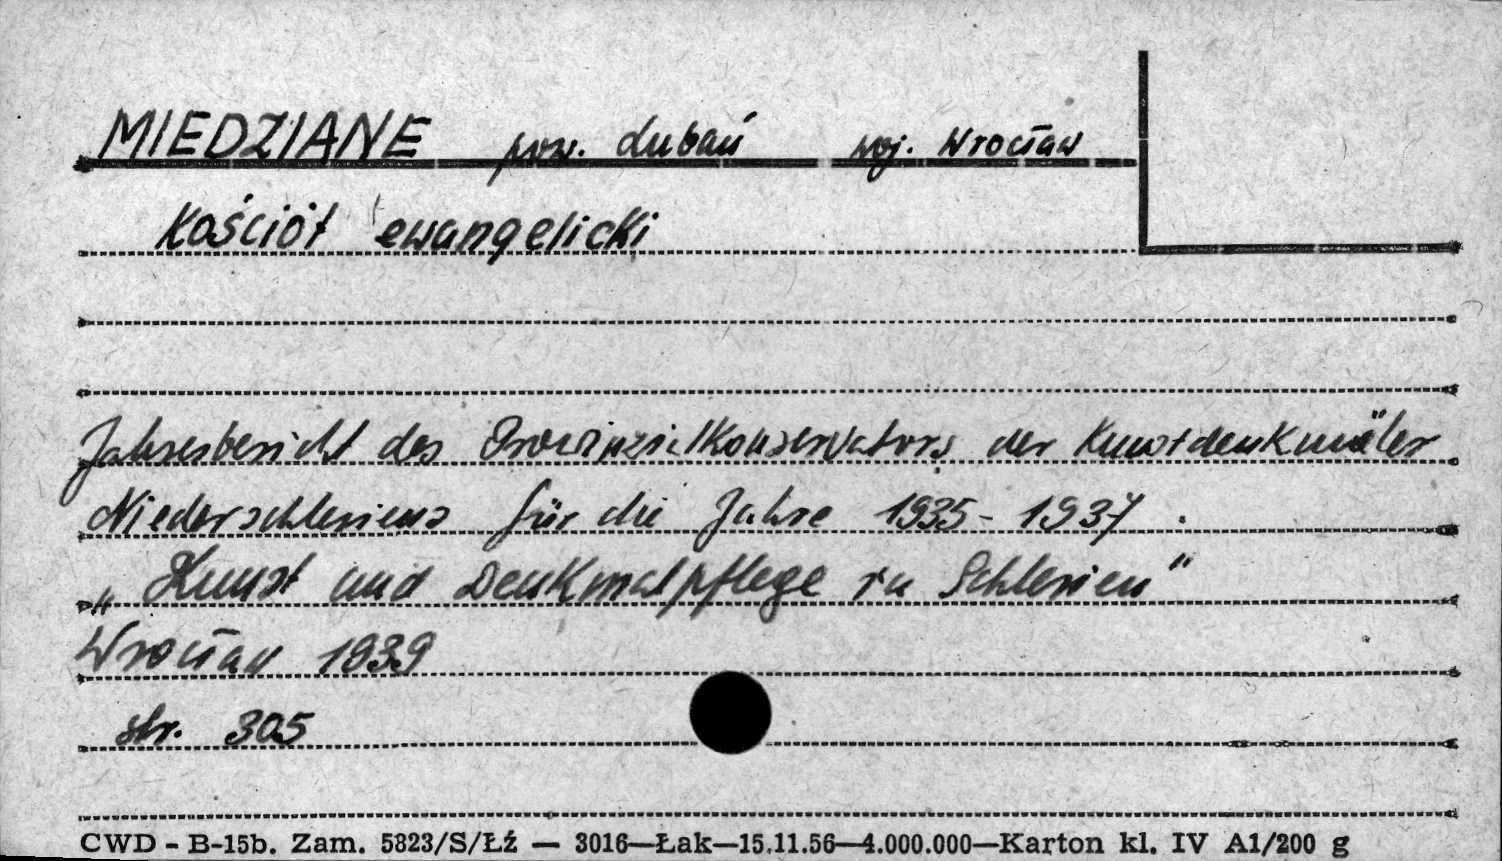 MIEDZIANE pow. Lubań woj. Wrocław
Kościół ewangelicki
Jahresbericht des Provinzialkonservators der Kunstdenkmäler
Niederschlesiens für die Jahre 1935-1937.
„Kunst und Denkmalpflege in Schlesien"
Wrocław 1939
str. 305
CWD - B-15b. Zam. 5823/S/Łź — 3016—Łak—15.11.56—4.000.000—Karton kl. IV A1/200 g